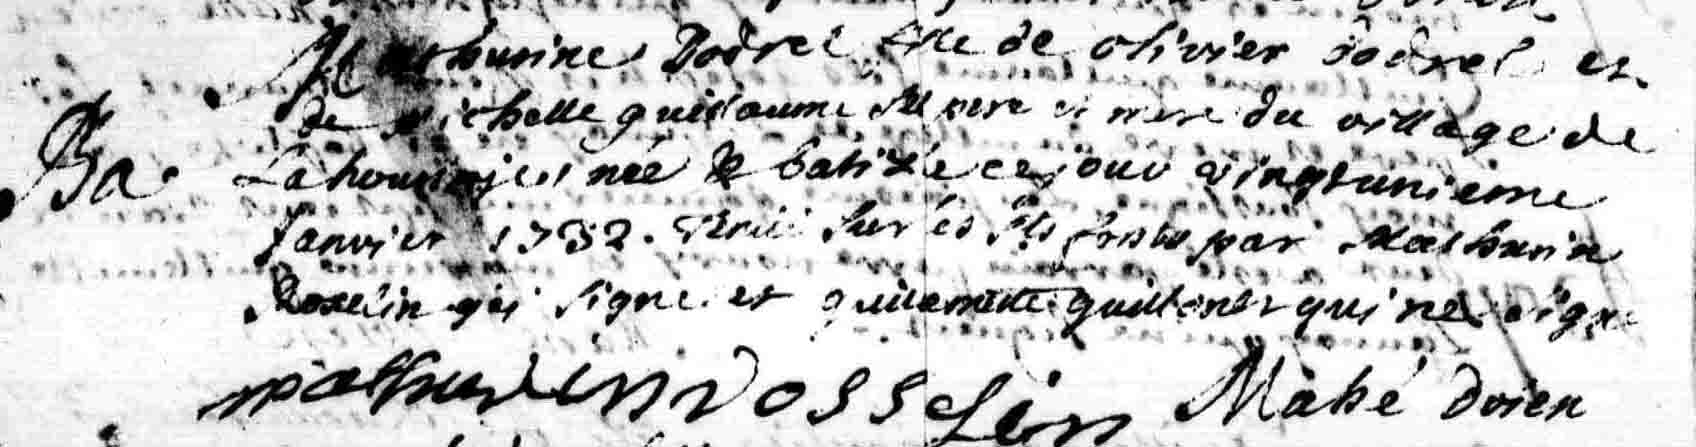 Mathurine Dodrel fille de olivier dodrel et
de michelle guillaume ses pere et mere du village de
Ba. née & batizée ce jour vingtunieme
Janvier 1732. tenüe sur les sts fonts par Mathurin
Rosselin qui signe et guillemette qui ne signe
mathurin rosselin Mahé doien